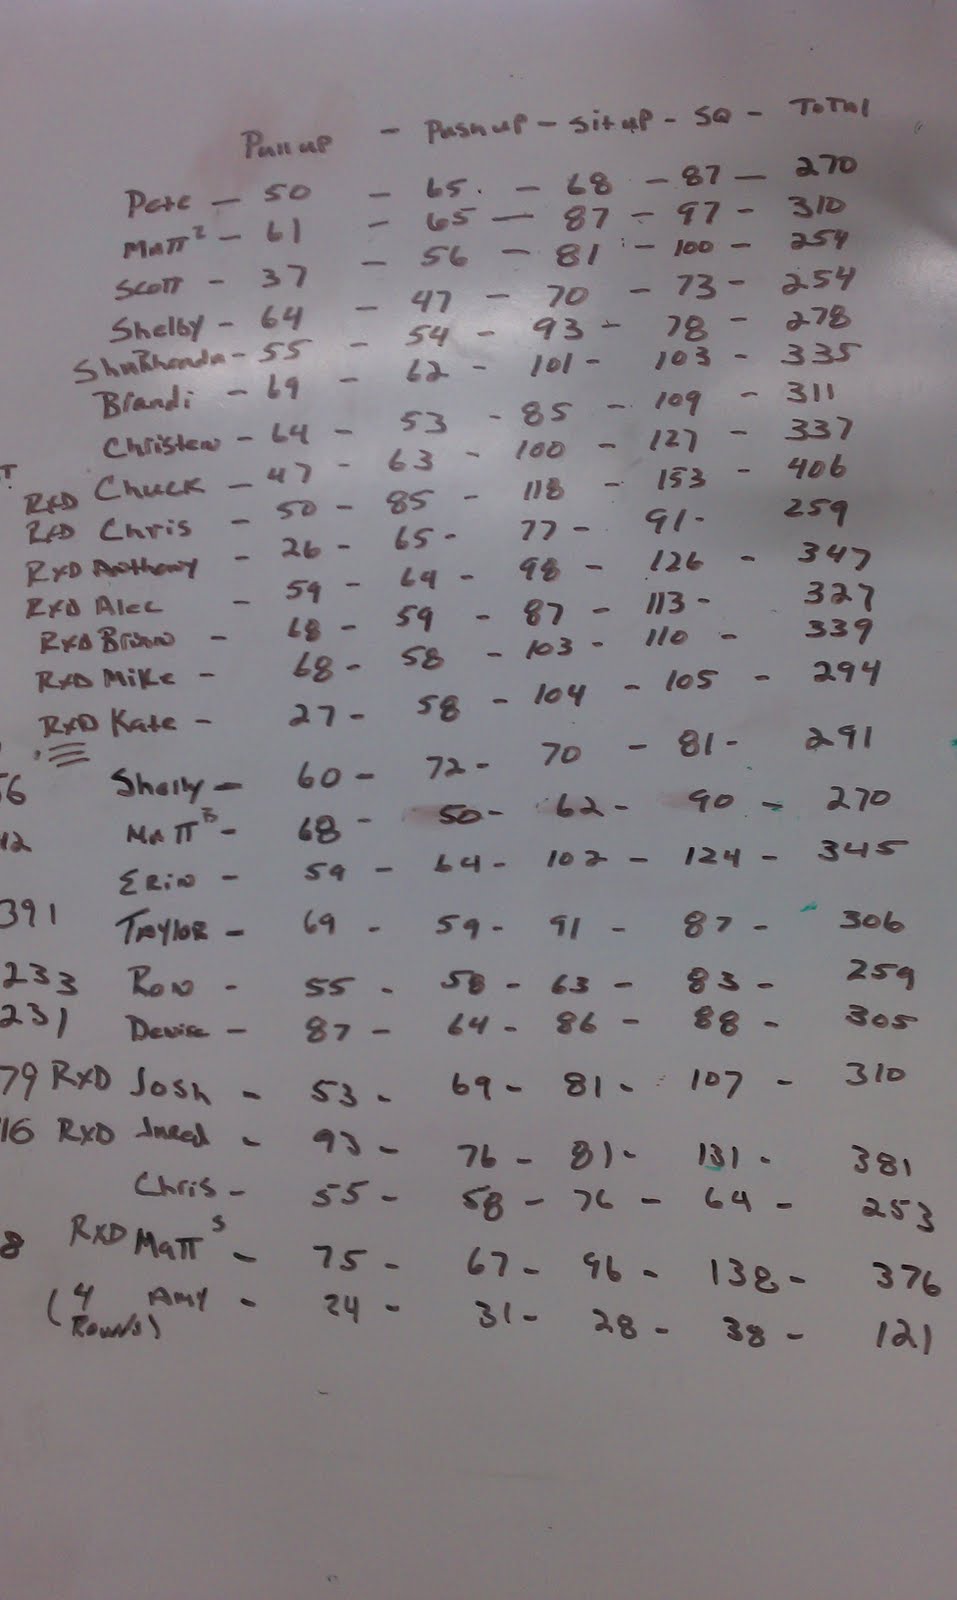 Pull up - Pushup - Situp - SQ - Total
Pete - 50 - 65 - 68 - 87 - 270
Matt Z - 61 - 65 - 87 - 97 - 310
Scott - 37 - 56 - 81 - 100 - 254
Shelby - 64 - 47 - 70 - 73 - 254
Shubhanda - 55 - 54 - 93 - 78 - 278
Brandi - 69 - 62 - 101 - 103 - 335
Christen - 64 - 53 - 85 - 109 - 311
RXD Chuck - 47 - 63 - 100 - 127 - 337
RXD Chris - 50 - 85 - 118 - 153 - 406
RXD Anthony - 26 - 65 - 77 - 91 - 259
RXD Alec - 59 - 64 - 98 - 126 - 347
RXD Brian - 68 - 59 - 87 - 113 - 327
RXD Mike - 68 - 58 - 103 - 110 - 339
RXD Kate - 27 - 58 - 104 - 105 - 294
Shelly - 60 - 72 - 70 - 81 - 291
Matt B - 68 - 50 - 62 - 90 - 270
Erin - 59 - 64 - 102 - 124 - 345
391 Taylor - 69 - 59 - 91 - 87 - 306
233 Ron - 55 - 58 - 63 - 83 - 259
231 Denise - 87 - 64 - 86 - 88 - 305
79 RXD Josh - 53 - 69 - 81 - 107 - 310
16 RXD Jared - 93 - 76 - 81 - 131 - 381
Chris - 55 - 58 - 76 - 64 - 253
8 RXD Matt S - 75 - 67 - 96 - 138 - 376
(4 Rounds) Amy - 24 - 31 - 28 - 38 - 121